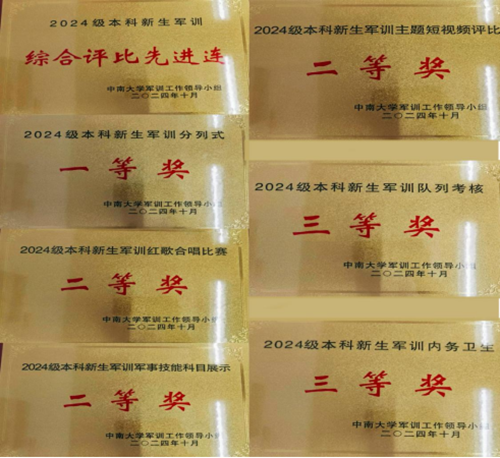 2024级本科新生军训
综合评比先进连
中南大学军训工作领导小组
二〇二四年十月
2024级本科新生军训分列式
一等奖
中南大学军训工作领导小
二〇二四年十月
2024级本科新生军训红歌合唱比赛
二等奖
中南大学军训工作领导小组
二〇二四年十月
2024级本科新生军训军事技能科目展示
二等奖
中南大学军训工作领导小
二〇二四年十月
2024级本科新生军训主题短视频评比
二等奖
中南大学军训工作领导小
二〇二四年十月
2024级本科新生军训队列考核
三等奖
中南大学军训工作领导小组
二〇二四年十月
2024级本科新生军训内务卫生
三等奖
中南大学军训工作领导小组
二〇二四年十月